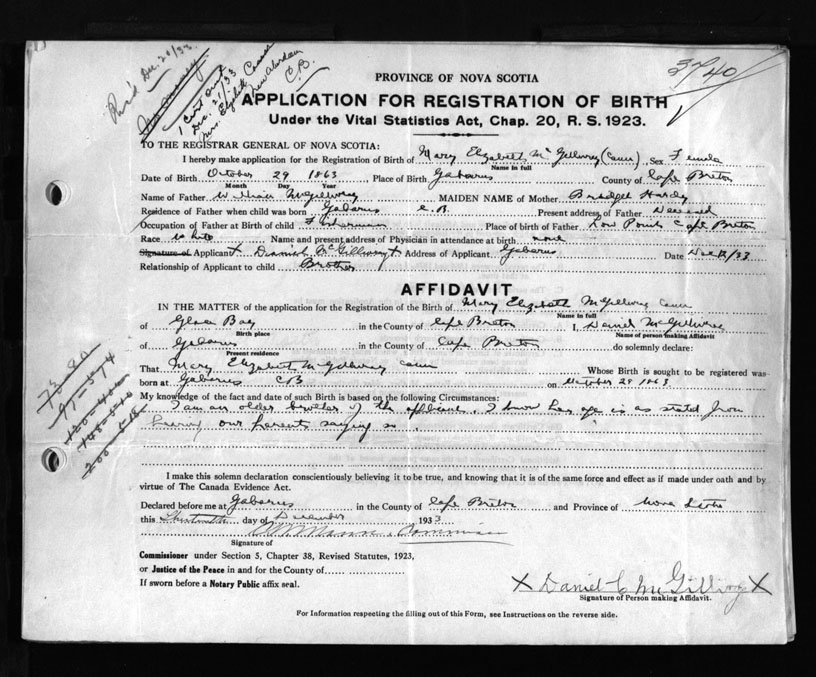 3740
Rec'd Dec. 20/33
1 Cert sent
Dec. 21/33
Mrs. Elizabeth
New Aberdeen
C.B.
PROVINCE OF NOVA SCOTIA
APPLICATION FOR REGISTRATION OF BIRTH
Under the Vital Statistics Act, Chap. 20, R. S. 1923.
TO THE REGISTRAR GENERAL OF NOVA SCOTIA:
I hereby make application for the Registration of Birth of Mary Elizabeth McGillivray (Cann) Sex Female
Name in full
Date of Birth October 29 1863 Place of Birth Gabarus County of Cape Breton
Month Day Year
Name of Father William McGillivray MAIDEN NAME of Mother Bridget Hardy
Residence of Father when child was born Gabarus C.B. Present address of Father Deceased
Occupation of Father at Birth of child Fisherman Place of birth of Father Low Point Cape Breton
Race White Name and present address of Physician in attendance at birth none
Signature of Applicant X Daniel McGillivray X Address of Applicant Gabarus Date Dec 13/33
Relationship of Applicant to child Brother
AFFIDAVIT
IN THE MATTER of the application for the Registration of the Birth of Mary Elizabeth McGillivray Cann
Name in full
of Glace Bay in the County of Cape Breton I, Daniel McGillivray
Birth place Name of person making Affidavit
of Gabarus in the County of Cape Breton do solemnly declare:
Present residence
That Mary Elizabeth McGillivray Cann Whose Birth is sought to be registered was
born at Gabarus CB on October 29 1863
My knowledge of the fact and date of such Birth is based on the following Circumstances:
I am an older brother of the applicant. I know her age is as stated from
hearing our parents saying so.
I make this solemn declaration conscientiously believing it to be true, and knowing that it is of the same force and effect as if made under oath and by
virtue of The Canada Evidence Act.
Declared before me at Gabarus in the County of Cape Breton and Province of Nova Scotia
this Thirteenth day of December 1933
Signature of
Commissioner under Section 5, Chapter 38, Revised Statutes, 1923,
or Justice of the Peace in and for the County of
If sworn before a Notary Public affix seal.
X Daniel C McGillivray X
Signature of Person making Affidavit.
For Information respecting the filling out of this Form, see Instructions on the reverse side.